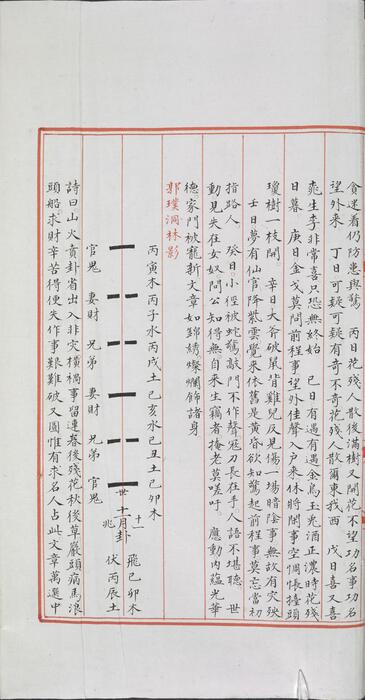 貪迷着仍防患與驚　丙日花殘人散後滿樹又開花不望功名事功名
望外來　丁日可疑可疑有奇不奇花殘人散爾東我西　戊日喜又喜
桃生李非常喜只恐無終始　己日有遇有遇金烏玉兔酒正濃時花殘
日暮　庚日金戈莫問前程事望外佳聲入戶來休將閑事空惆悵擡頭
瓊樹一枝開　辛日大斧破鼠肯雞兒反見傷一場暗陰事無故有灾殃
壬日夢有仙官降紫雲覺來依舊是黃昏欲知驚起前程事莫忘當初
指路人　癸日小徑被蛇驚敲門不作聲尨刀長在手人語不堪聽　世
動見失在女奴問公知得無自來生竊者掩老莫嗟吁。　應動內蘊光華
德家門被寵新文章如錦綉燦爛飾諸身
郭璞洞林影
丙寅木丙子水丙戌土己亥水己丑土己卯木
世十一月卦
兆　飛己卯木
伏丙辰土
官鬼　妻財　兄弟　妻財　兄弟　官鬼
詩曰山火賁卦省出入非灾橫禍事留連春後殘花秋後草嚴頭病馬浪
頭船。求財辛苦得便失作事艱難破又圓惟有求名人占此文章萬選中